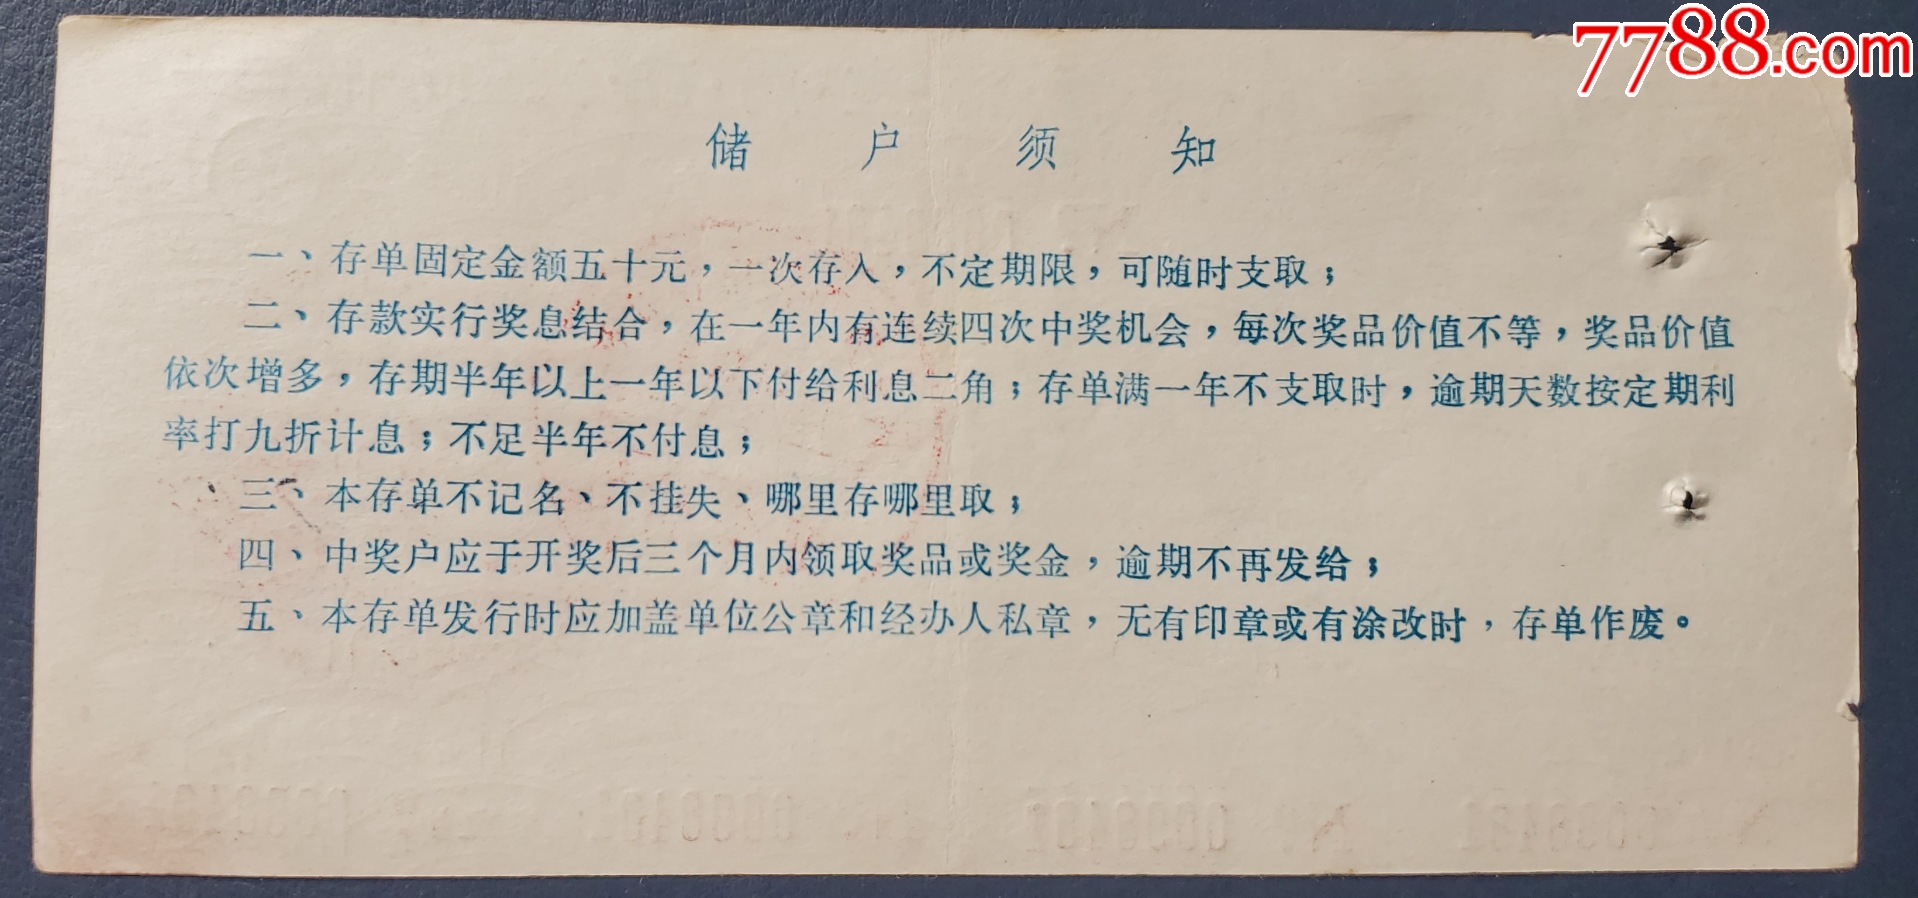 7788.com
储户须知
一、存单固定金额五十元，一次存入，不定期限，可随时支取；
二、存款实行奖息结合，在一年内有连续四次中奖机会，每次奖品价值不等，奖品价值
依次增多，存期半年以上一年以下付给利息二角；存单满一年不支取时，逾期天数按定期利
率打九折计息；不足半年不付息；
三、本存单不记名、不挂失、哪里存哪里取；
四、中奖户应于开奖后三个月内领取奖品或奖金，逾期不再发给；
五、本存单发行时应加盖单位公章和经办人私章，无有印章或有涂改时，存单作废。